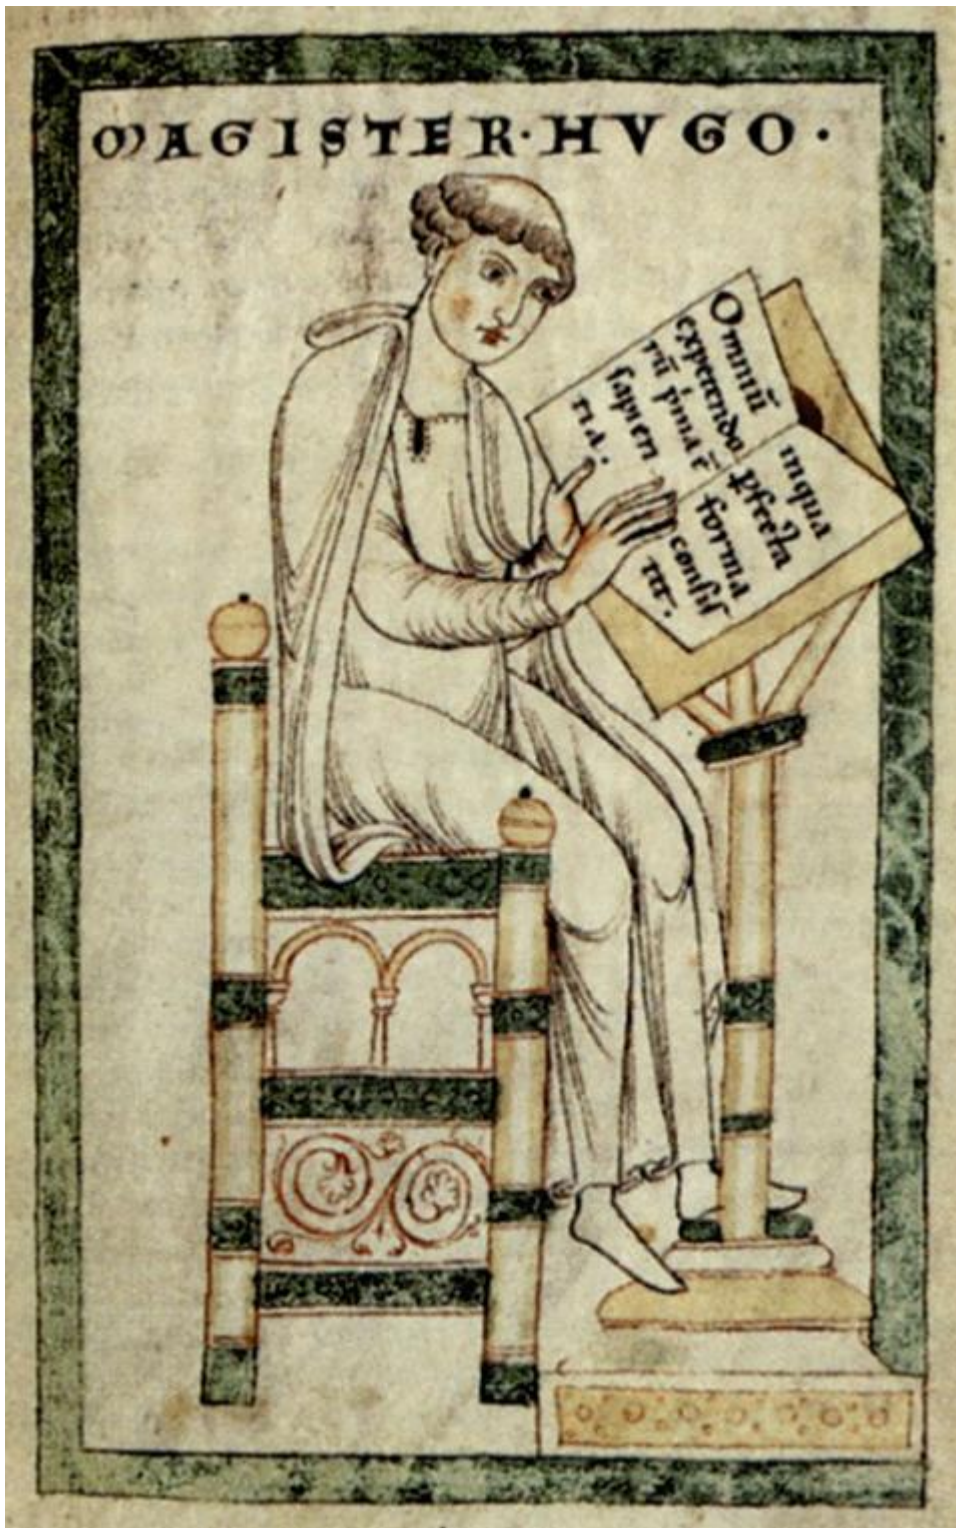 MAGISTER·HVGO·
Omniū
expetendo
rū pͥma ē
sapien
tia.
inqua
ꝑfecta
forma
consis
tit.